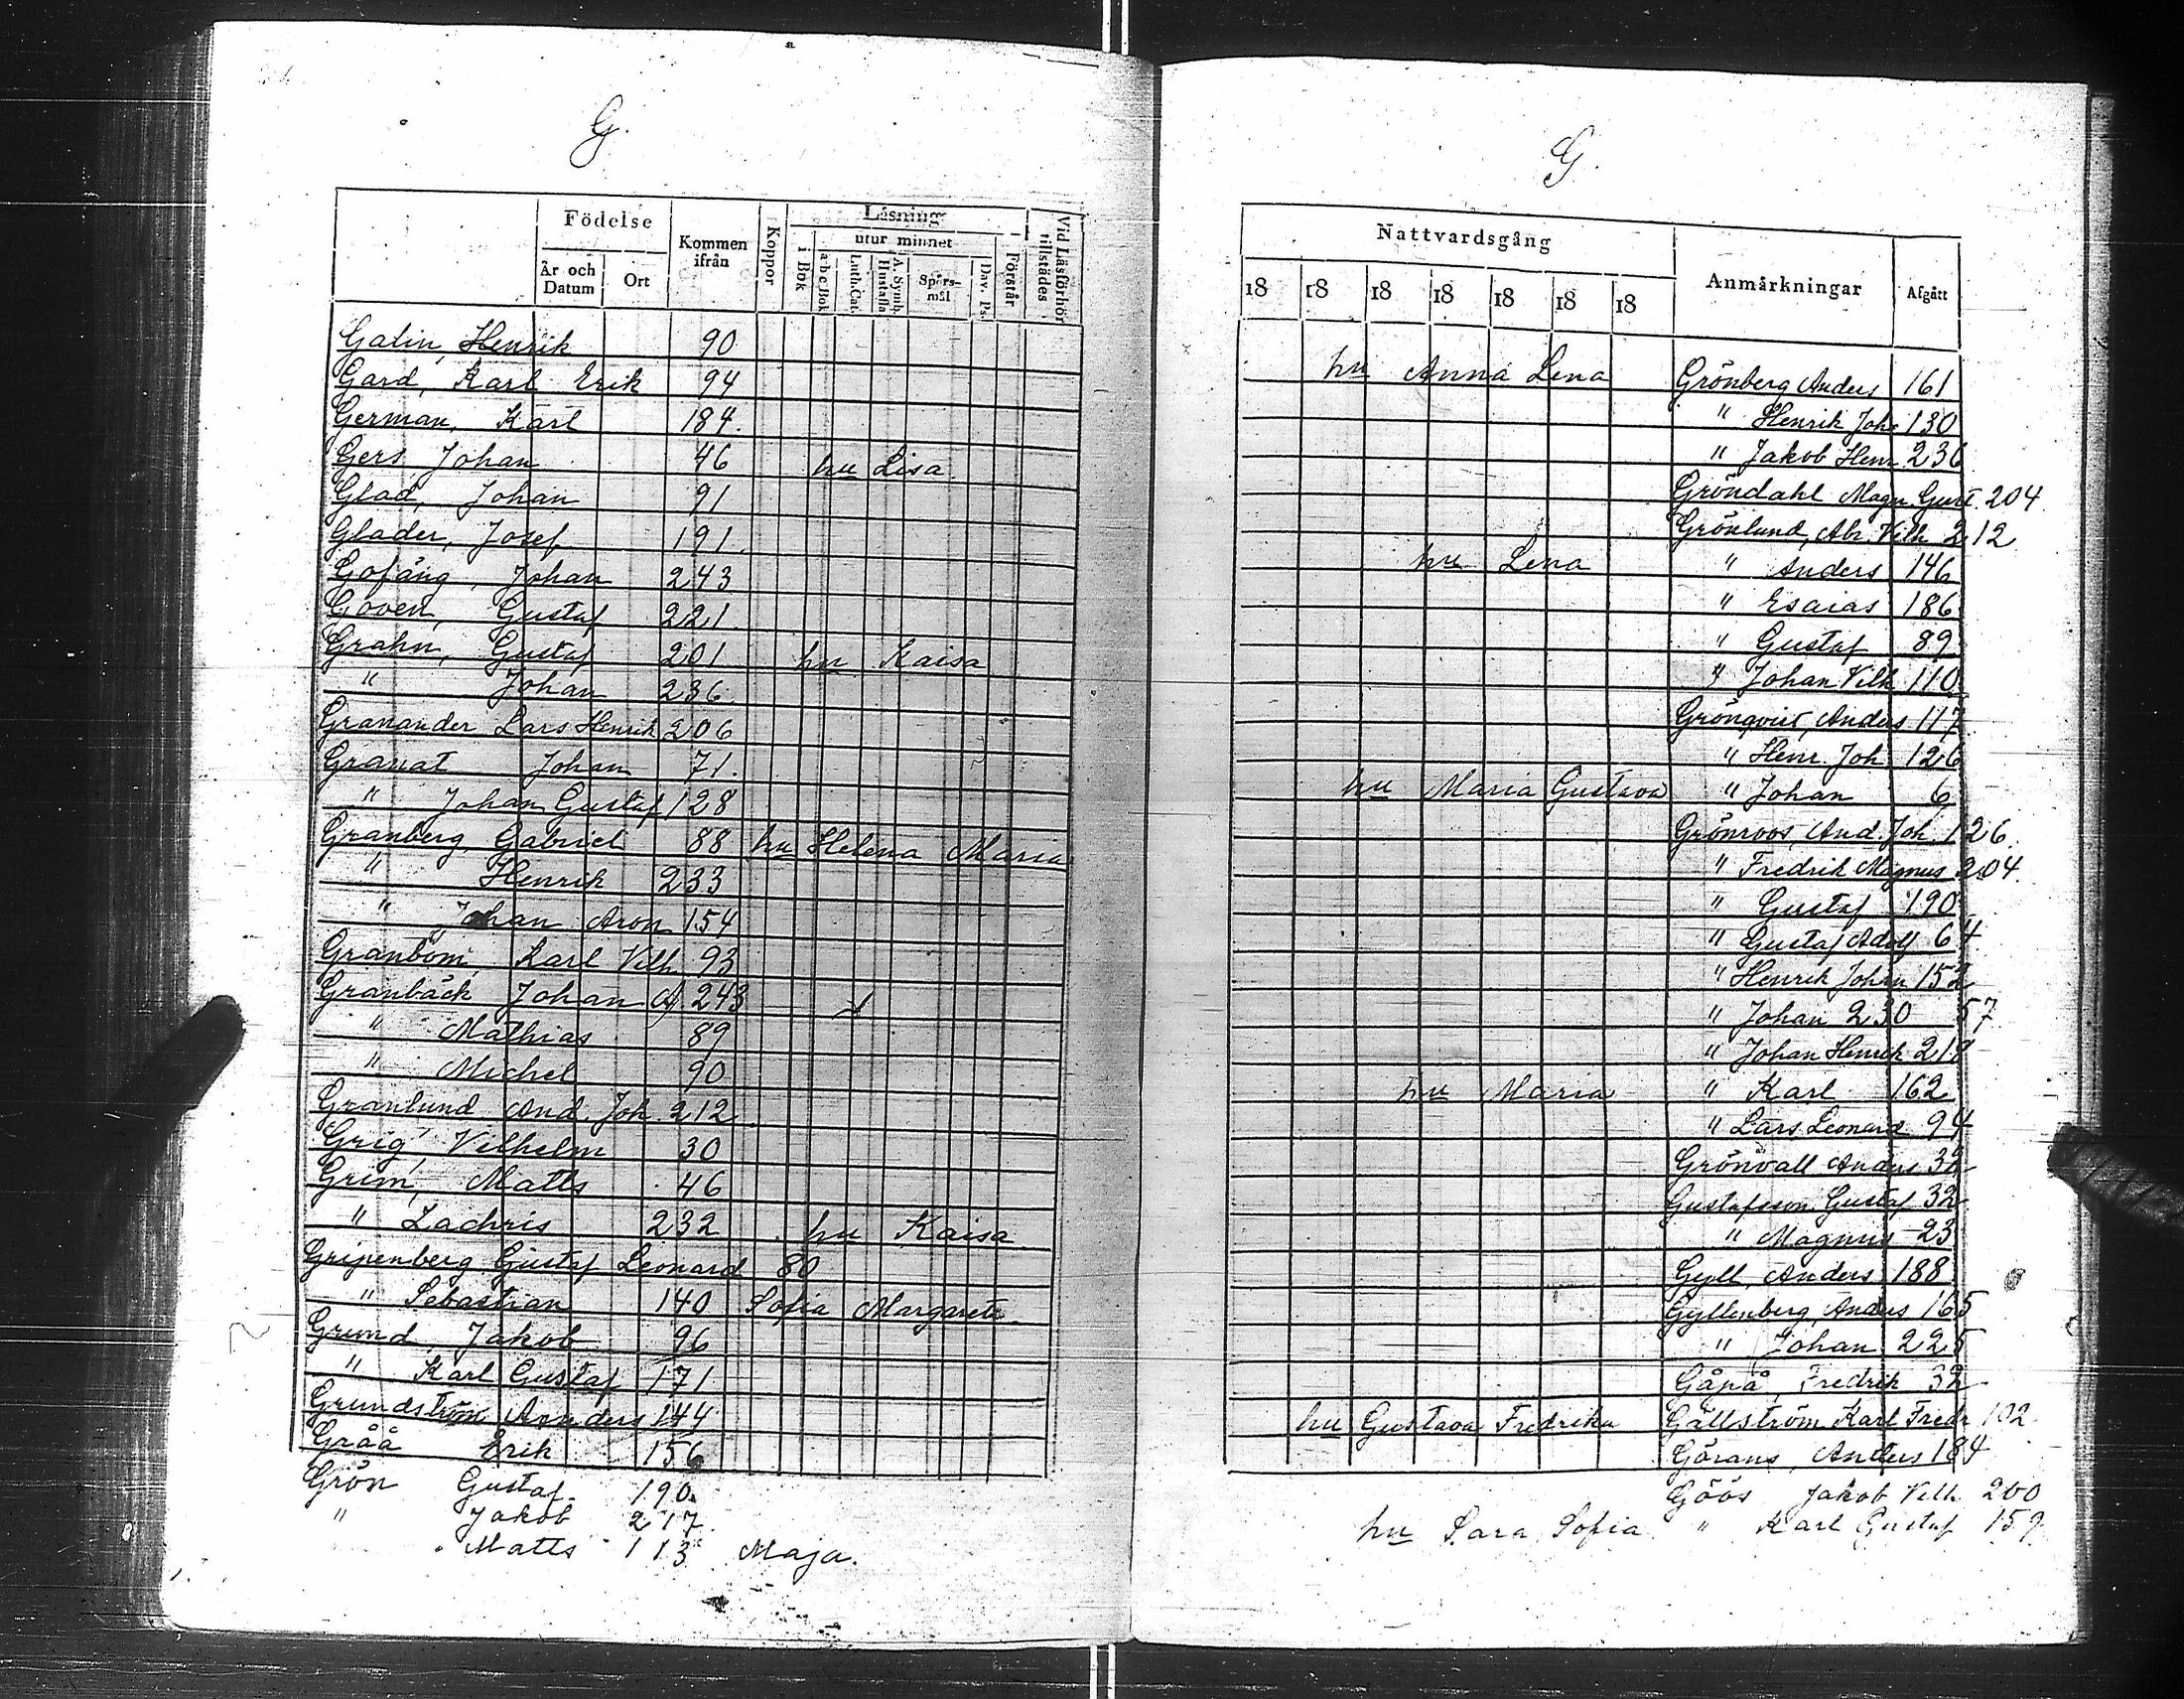 G.
Födelse
Kommen ifrån
Koppor
Läsning
utur minnet
i Bok
a b c Bok
Luth. Cat.
A. Symb. Hustafla
Spörs-mål
Dav. Ps.
Förstår
Vid Läsförhör tillstädes
År och Datum
Ort
Galin, Henrik 90
Gard, Karl Erik 94
German, Karl 184.
Gers Johan 46 hu Lisa
Glad, Johan 91
Glader, Josef 191.
Gofäng, Johan 243
Goven, Gustaf 221.
Grahn, Gustaf 201 hu Kaisa
" Johan 236.
Granander Lars Henrik 206
Granat Johan 71.
" Johan Gustaf 128
Granberg, Gabriel 88 hu Helena Maria
" Henrik 233
" Johan Aron 154
Granbom, Karl Vilh. 93
Granbäck, Johan A 243
" Mathias 89
" Michel 90
Granlund And. Joh. 212
Grig, Vilhelm 30
Grim, Matts 46
" Zachris 232 hu Kaisa
Gripenberg Gustaf Leonard 80
" Sebastian 140 Sofia Margareta
Grund, Jakob 96
" Karl Gustaf 171
Grundström Anders 144
Gråå Erik 156
Grön Gustaf 190.
" Jakob 217
" Matts 113 Maja.
G.
Nattvardsgång
Anmärkningar
Afgått
18 18 18 18 18 18 18
hu Anna Lena Grönberg Anders 161
" Henrik Joh. 130
" Jakob Henr. 236
Gröndahl Magn. Gust. 204
Grönlund, Abr. Vilh 212
hu Lena " Anders 146
" Esaias 186
" Gustaf 89
" Johan Vilh 110
Grönqvist, Anders 117
" Henr. Joh 126
hu Maria Gustava " Johan 6
Grönroos, And. Joh. 126.
" Fredrik Magnus 204.
" Gustaf 190
" Gustaf Adolf 64
" Henrik Johan 152
" Johan 230 57
" Johan Henrik 218
hu Maria " Karl 162
" Lars Leonard 94
Grönvall Anders 32
Gustafsson Gustaf 32
" Magnus 23
Gyll, Anders 188
Gyllenberg, Anders 165
" Johan 225
Gåpå, Fredrik 32
hu Gustava Fredrika Gällström Karl Fredr 102
Görans, Anders 184
Göös Jakob Vilh. 200
hu Sara Sofia " Karl Gustaf 159